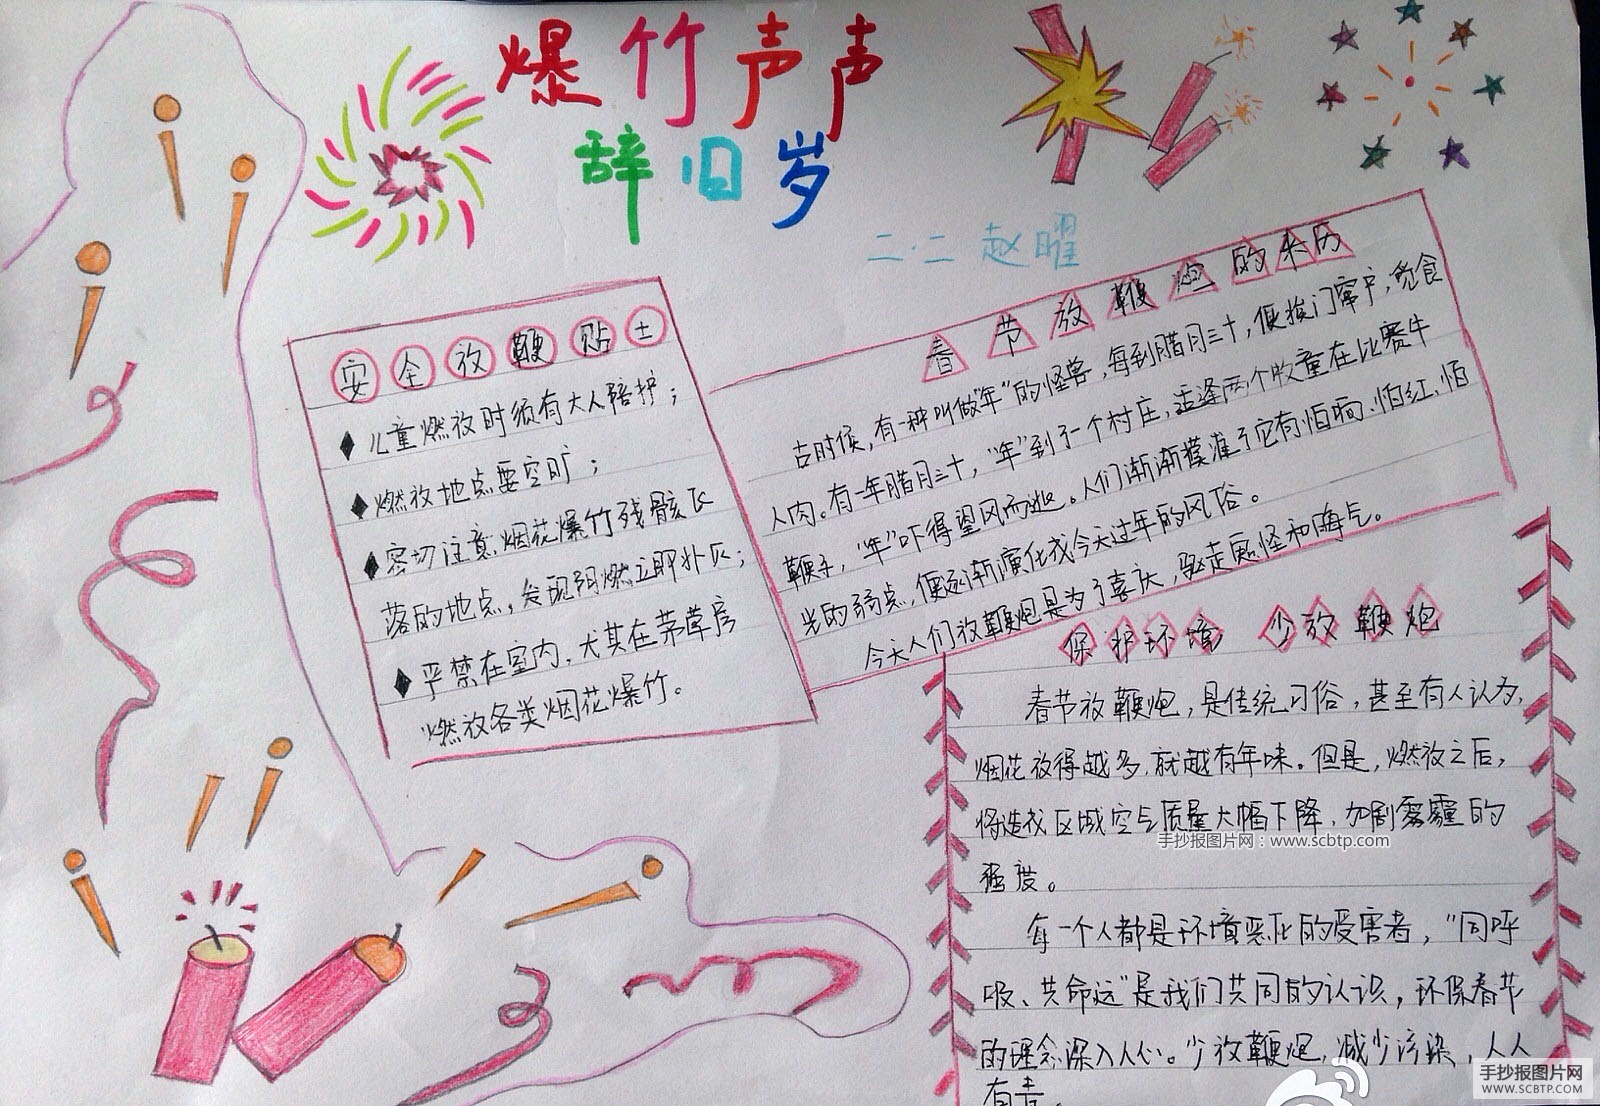 爆竹声声
辞旧岁
二·二 赵曜
安全放鞭贴士
◆儿童燃放时须有大人陪护；
◆燃放地点要空旷；
◆密切注意烟花爆竹残骸飞
落的地点，发现阴燃立即扑灭；
◆严禁在室内，尤其在茅草房
燃放各类烟花爆竹。
春节放鞭炮的来历
古时候，有一种叫做“年”的怪兽，每到腊月三十，便挨门窜户，觅食
人肉。有一年腊月三十，“年”到了一个村庄，适逢两个牧童在比赛牛
鞭子，“年”吓得望风而逃。人们渐渐摸准了它有怕响、怕红、怕
光的弱点，便逐渐演化成今天过年的风俗。
今天人们放鞭炮是为了喜庆，驱走鬼怪和晦气。
保护环境 少放鞭炮
春节放鞭炮，是传统习俗，甚至有人认为，
烟花放得越多，就越有年味。但是，燃放之后，
将造成区域空气质量大幅下降，加剧雾霾的
强度。
每一个人都是环境恶化的受害者，“同呼
吸、共命运”是我们共同的认识，环保春节
的理念深入人心。少放鞭炮，减少污染，人人
有责。
手抄报图片网：www.scbtp.com
手抄报图片网
WWW.SCBTP.COM